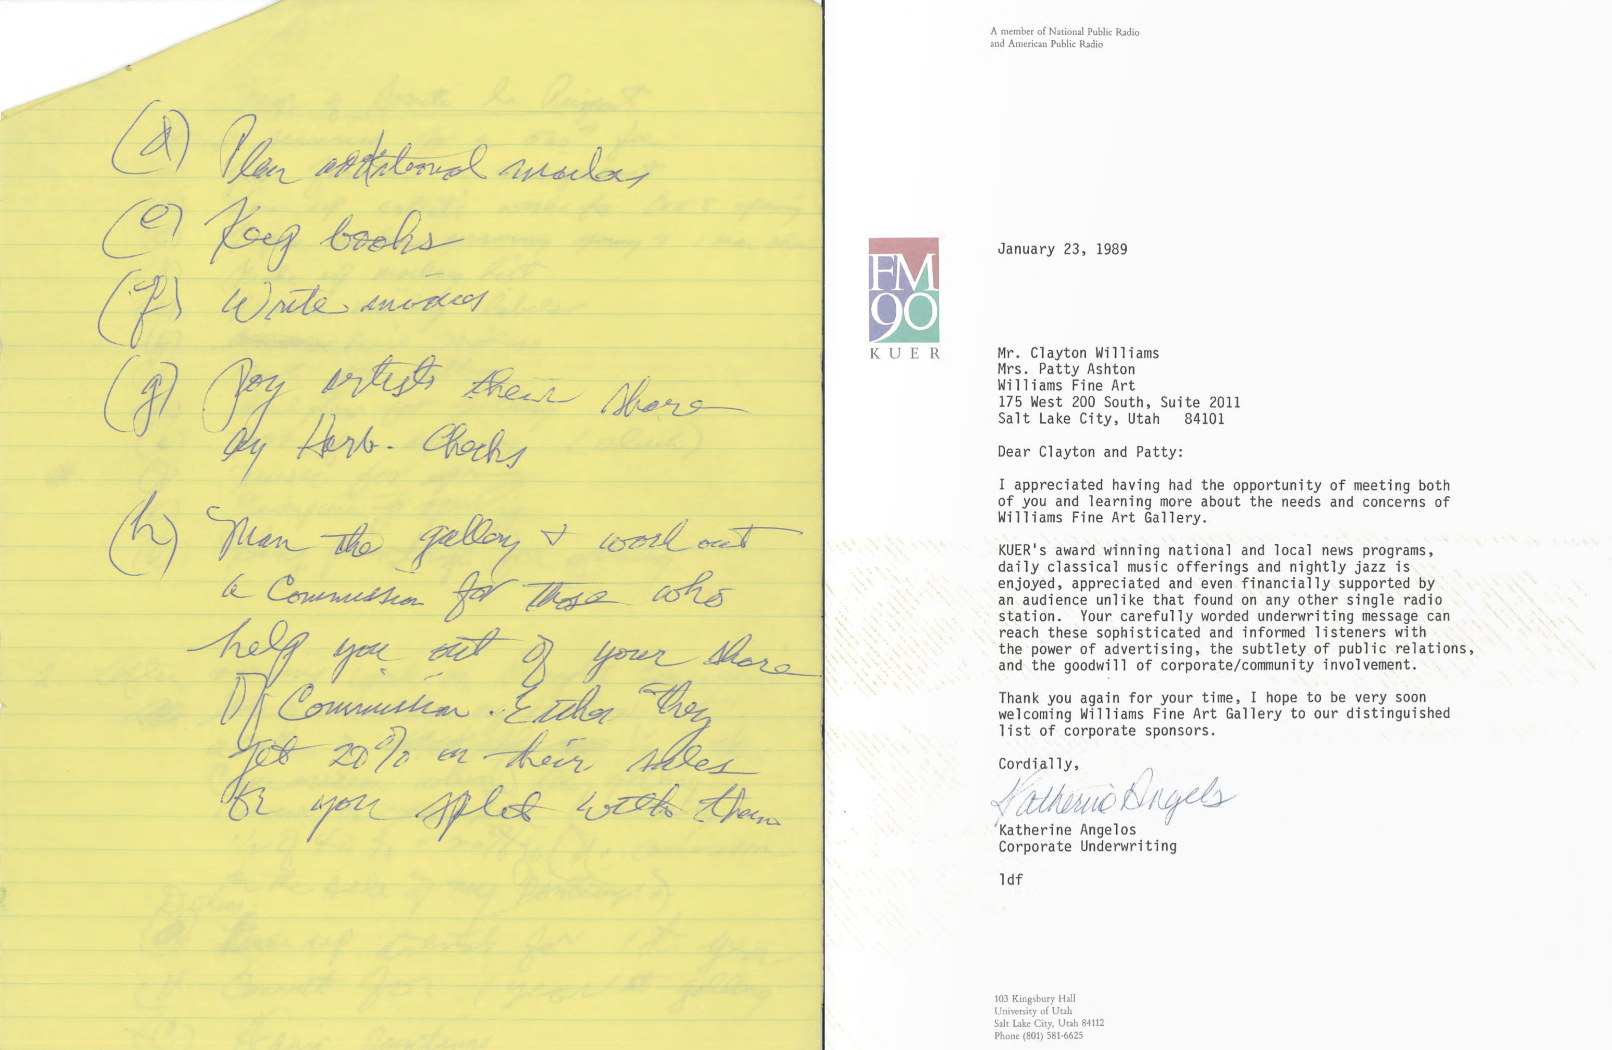 (d) Plan additional
(e) Keep books
(f) Write invoices
(g) Pay artists their share
by Herb. Checks
(h) Man the gallery & work out
a Commission for those who
help you out of your share
Of Commission. Either they
get 20% on their sales
Or you split with them
A member of National Public Radio
and American Public Radio
FM
90
KUER
January 23, 1989
Mr. Clayton Williams
Mrs. Patty Ashton
Williams Fine Art
175 West 200 South, Suite 2011
Salt Lake City, Utah 84101
Dear Clayton and Patty:
I appreciated having had the opportunity of meeting both
of you and learning more about the needs and concerns of
Williams Fine Art Gallery.
KUER's award winning national and local news programs,
daily classical music offerings and nightly jazz is
enjoyed, appreciated and even financially supported by
an audience unlike that found on any other single radio
station. Your carefully worded underwriting message can
reach these sophisticated and informed listeners with
the power of advertising, the subtlety of public relations,
and the goodwill of corporate/community involvement.
Thank you again for your time, I hope to be very soon
welcoming Williams Fine Art Gallery to our distinguished
list of corporate sponsors.
Cordially,
Katherine Angelos
Katherine Angelos
Corporate Underwriting
ldf
103 Kingsbury Hall
University of Utah
Salt Lake City, Utah 84112
Phone (801) 581-6625